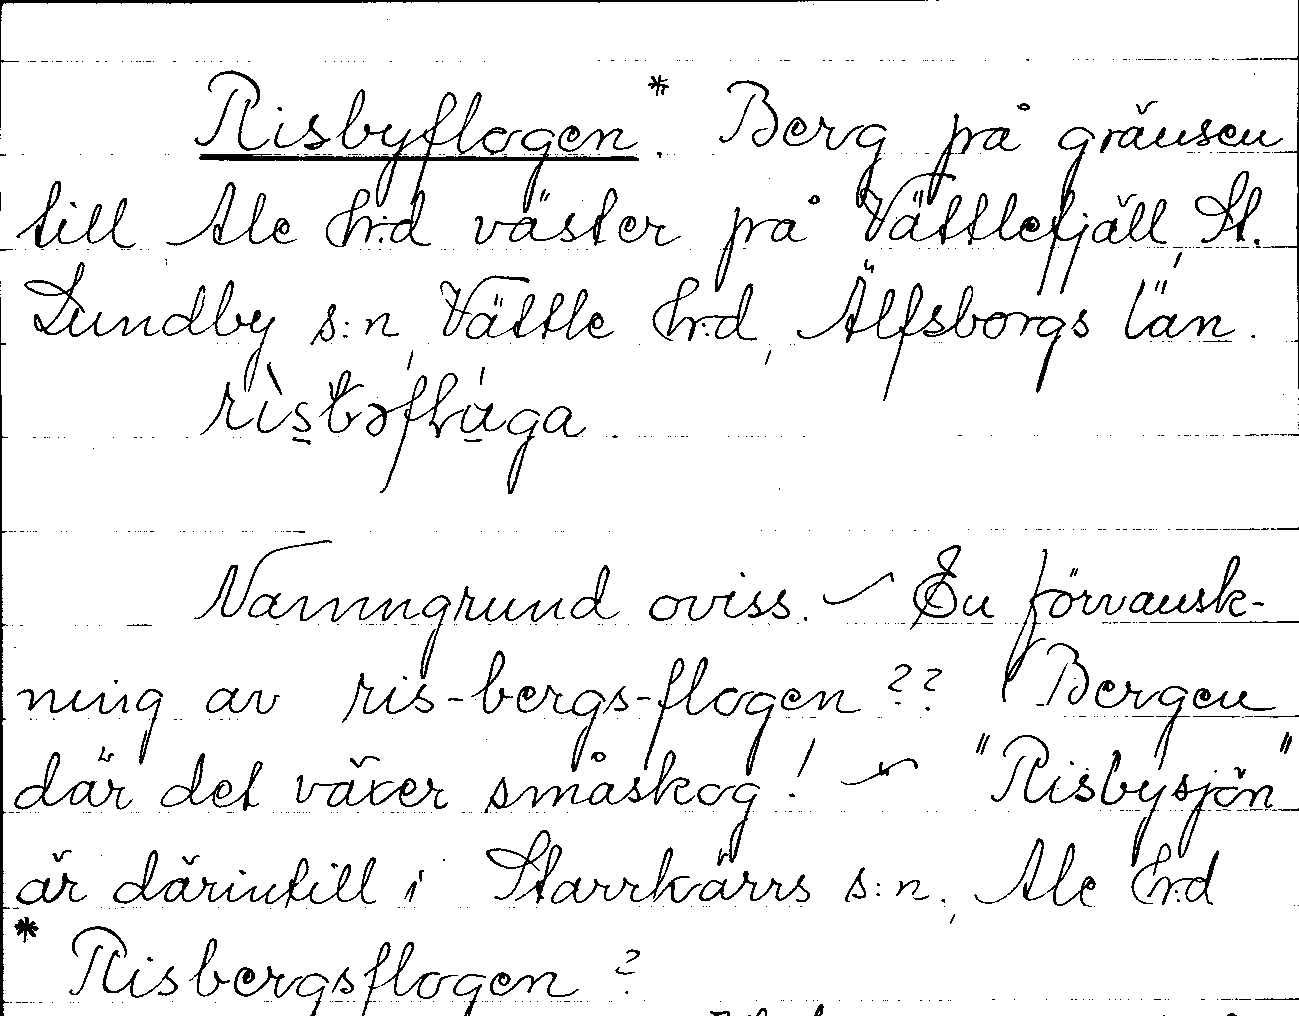 Risbyflogen.* Berg på gränsen
till Ale hr:d väster på Vättlefjäll, St.
Lundby s:n, Vättle hr:d, Älfsborgs län.
Namngrund oviss. – En förvansk-
ning av ris-bergs-flogen?? Bergen
där det växer småskog! – "Risbysjön"
är därintill i Starrkärrs s:n, Ale hr:d
* Risbergsflogen?